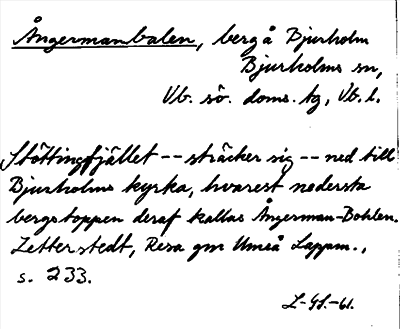 Ångermanbalen, berg å Bjurholm
Bjurholms sn,
Vb. sö. doms. tg, Vb. l.
Stöttingfjället -- sträcker sig -- ned till
Bjurholms kyrka, hvarest nedersta
bergstoppen deraf kallas Ångerman-Bohlen.
Zetterstedt, Resa gm Umeå Lappm.,
s. 233.
L-GS.-61.